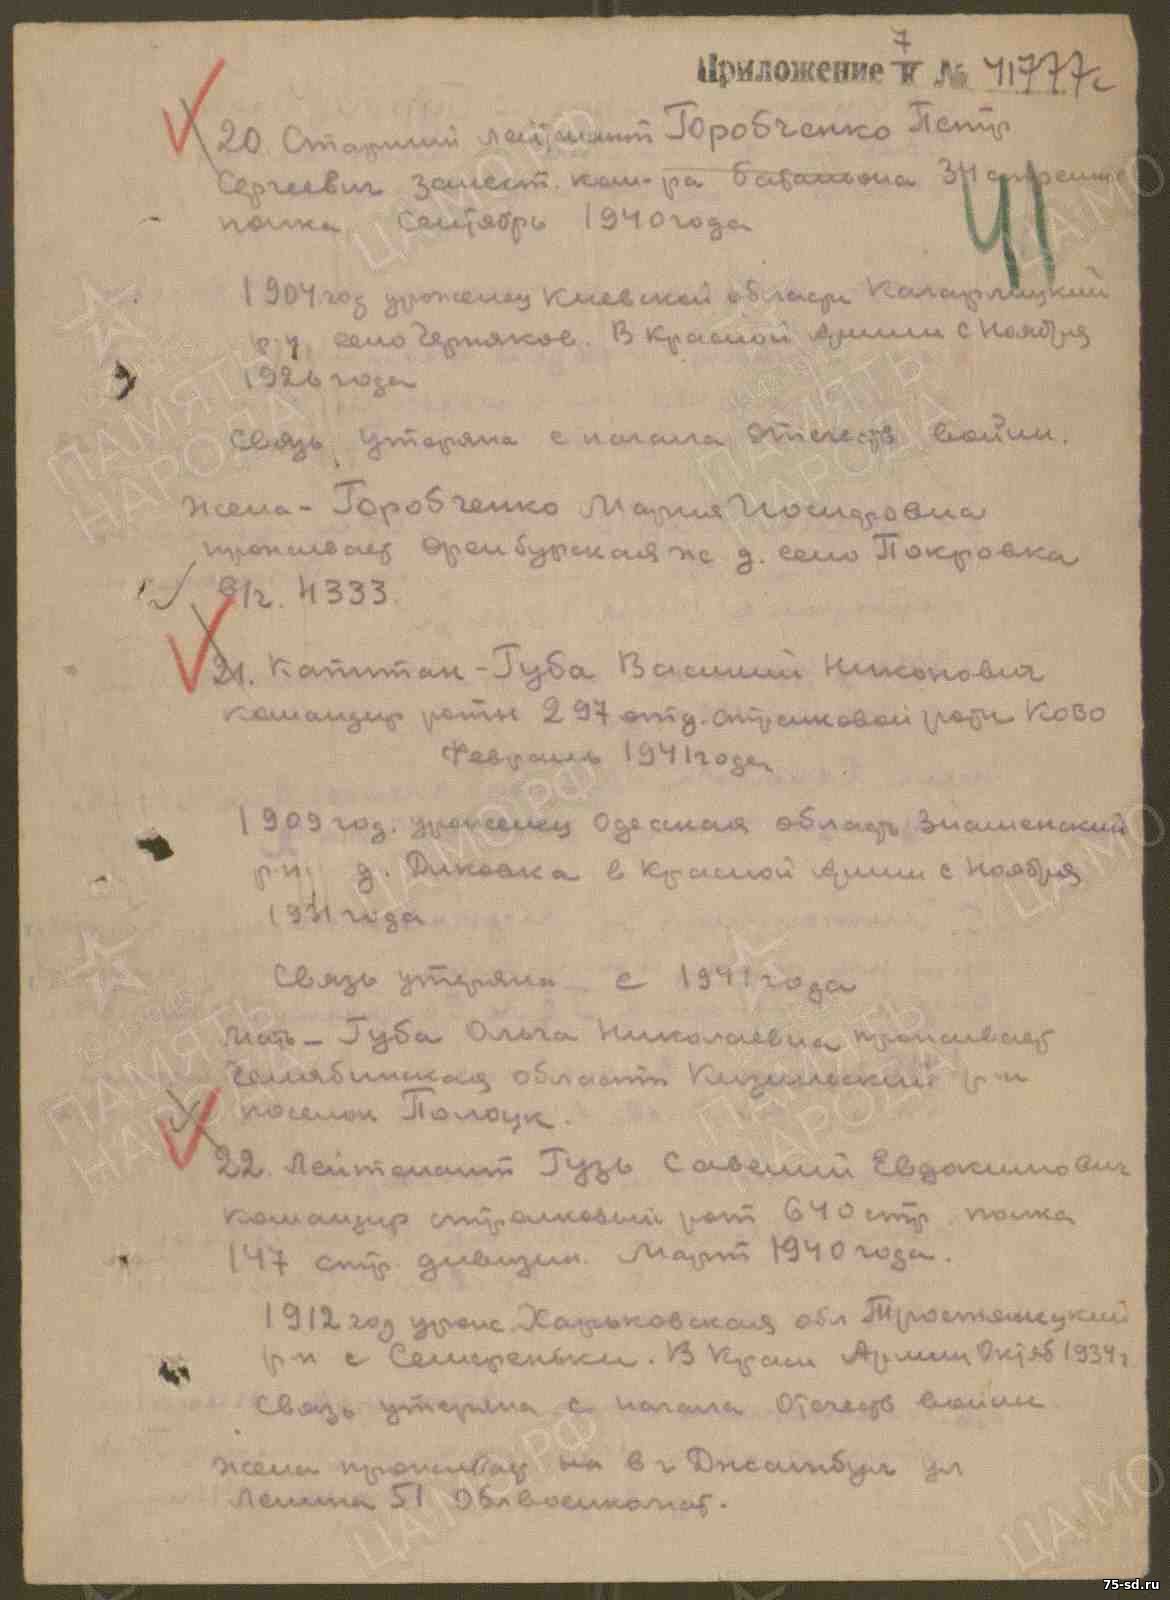 Приложение 7 к № 41777с
20. Старший лейтенант Горобченко Петр
Сергеевич замест. ком-ра батальона 34 стрелк
полка Сентябрь 1940 года
41
1904 год уроженец Киевской области Кагарлицкий
р-н, село Черняхов. В Красной Армии с Ноября
1926 года
Связь утеряна с начала отечеств войны.
Жена - Горобченко Мария Исидровна
проживает Оренбургская ж д. село Покровка
в/ч. 4333.
21. Капитан - Губа Василий Никонович
командир роты 297 отд. стрелковой роты КОВО
Февраль 1941 года
1909 год. уроженец Одесская область Знаменский
р-н, д. Диковка в Красной Армии с Ноября
1931 года
Связь утеряна с 1941 года
Мать - Губа Ольга Николаевна проживает
Челябинская область Кизильский р-н
поселок Полоцк.
22. Лейтенант Гузь Савелий Евдокимович
командир стрелковый рот 640 стр. полка
147 стр. дивизии. Март 1940 года.
1912 год урож. Харьковская обл Тростянецкий
р-н с Семереньки. В Красн Армии Октяб 1934 г
Связь утеряна с начала Отечеств войны
Жена проживает на в г Джамбул ул
Ленина 51 Облвоенкомат.
ПАМЯТЬ НАРОДА
ЦАМО РФ
75-sd.ru